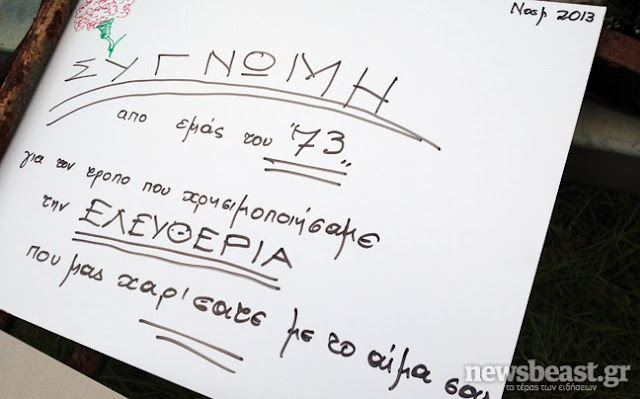 Νοεμ 2013
ΣΥΓΝΩΜΗ
απο εμάς του "73"
για τον τροπο που χρησιμοποιήσαμε
την ΕΛΕΥΘΕΡΙΑ
που μας χαρίσατε με το αίμα σας
newsbeast.gr
το τέρας των ειδήσεων